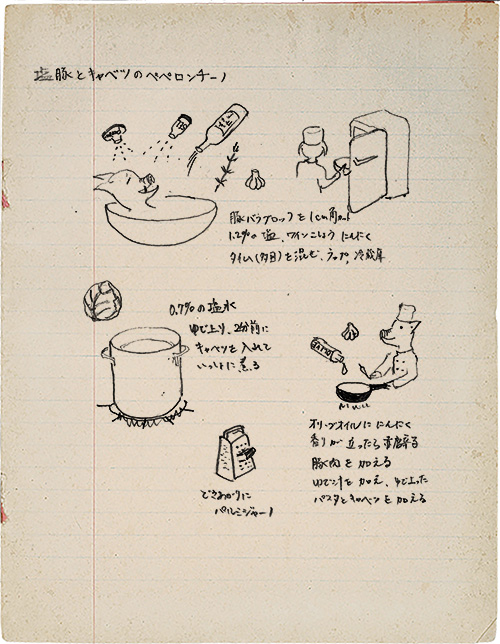 塩豚とキャベツのペペロンチーノ
豚バラブロックを1cm角
1.2%の塩、ワインこしょう にんにく
タイム(多目)を混ぜ、ラップ、冷蔵庫
0.7%の塩水
ゆで上り、2分前に
キャベツを入れて
いっしょに煮る
オリーブオイルににんにく
香りが立ったら唐辛子
豚肉を加える
ゆで汁を加え、ゆで上った
パスタとキャベツを加える
できあがりに
パルミジャーノ